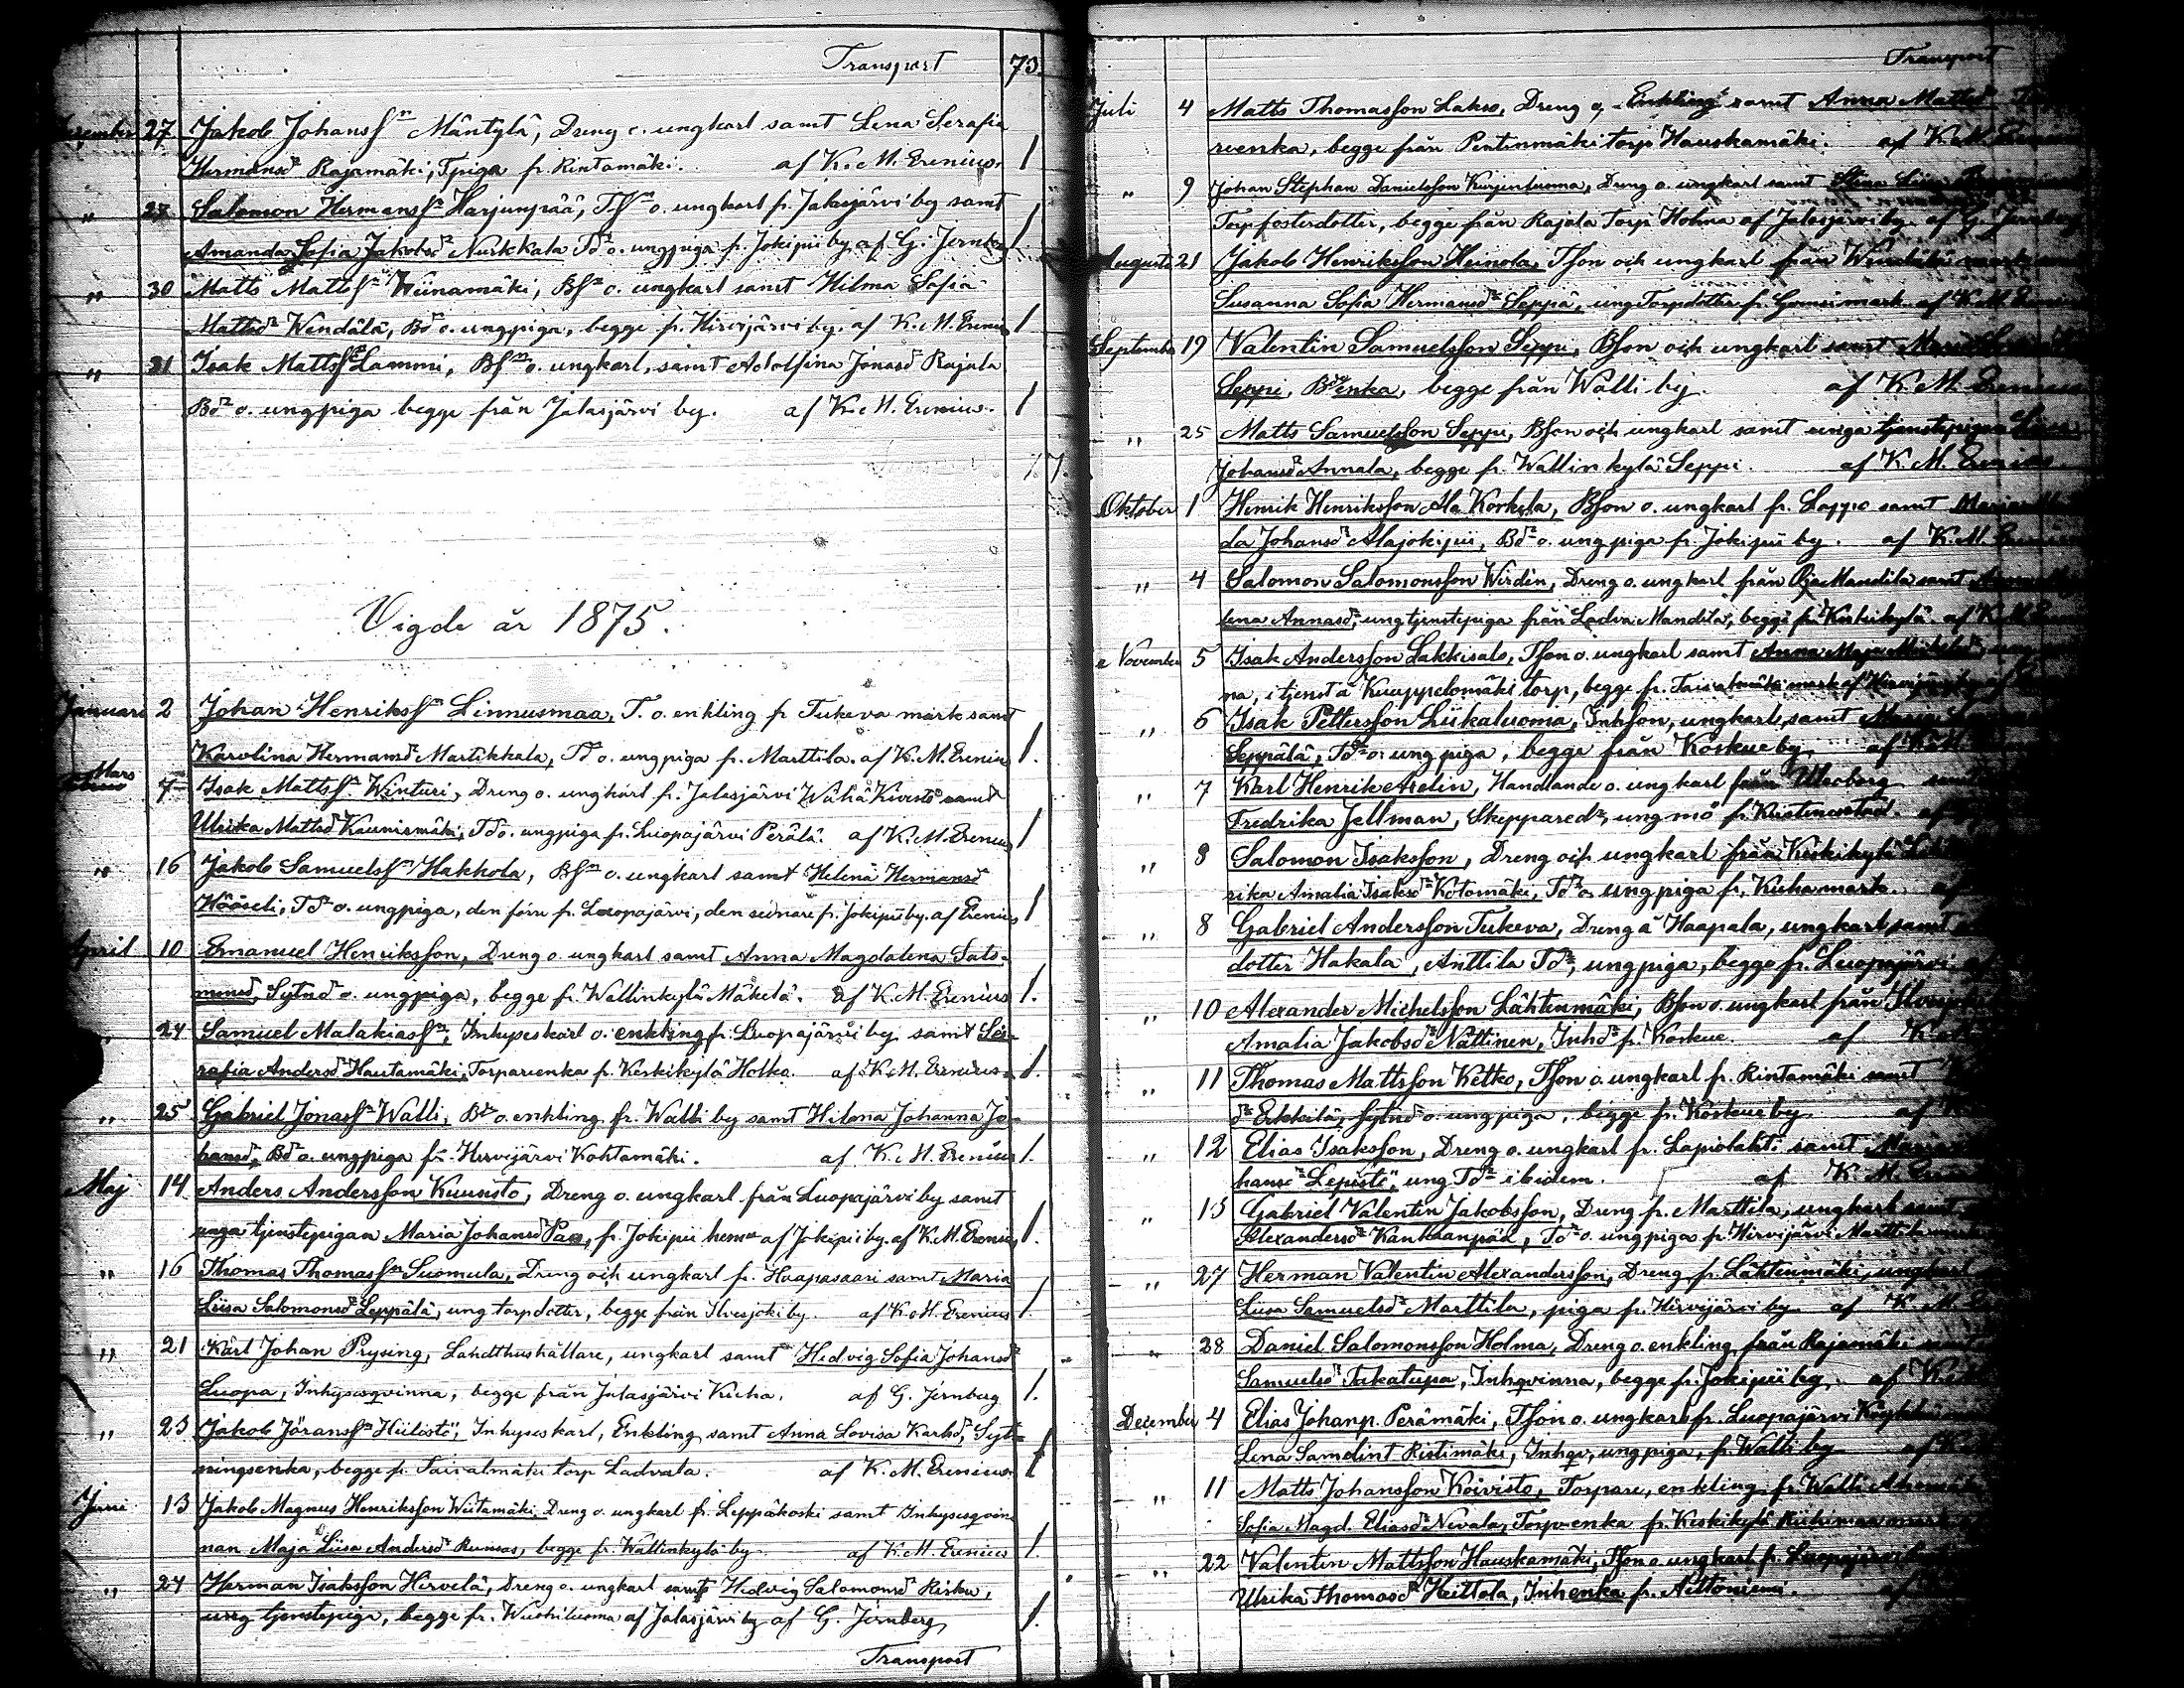 Transport 73.
December 27 Jakob Johansson Mäntylä, Dreng o. ungkarl samt Lena Serafia
Hermansdr Rajamäki, Tpiga fr. Rintamäki. af K. M. Erenius. 1
" 27 Salomon Hermanssn Harjunpää, Tssn o. ungkarl fr. Jalasjärvi by samt
Amanda Sofia Jakobsdr Nurkkala Tdr o. ungpiga fr. Jokipii by af G. Jernberg 1
" 30 Matts Mattssn Wiinamäki, Bssn o. ungkarl samt Hilma Sofia
Mattsdr Wendälä, Bdr o. ungpiga, begge fr. Hirvijärvi by. af K. M. Erenius 1
" 31 Isak Mattssn Lammi, Bssn o. ungkarl, samt Adolfina Jonasdr Rajala
Bdr o. ungpiga begge från Jalasjärvi by. af K. M. Erenius. 1
77.
Vigde år 1875.
Januari 2 Johan Henrikssn Linnusmaa, T. o. enkling fr Tukeva mark samt
Karolina Hermansdr Martikkala, Tdr o. ungpiga fr. Marttila. af K. M. Erenius 1.
Mars 7 Isak Mattssn Winturi, Dreng o. ungkarl fr. Jalasjärvi Wähä Kivistö samt
Ulrika Mattsdr Kaunismäki, Tdr o. ungpiga fr. Luopajärvi Perälä. af K. M. Erenius 1
" 16 Jakob Samuelssn Hakkola, Bssn o. ungkarl samt Helena Hermansdr
Hööseli, Tdr o. ungpiga, den förre fr. Luopajärvi, den senare fr. Jokipii by. af Erenius 1
April 10 Emanuel Henriksson, Dreng o. ungkarl samt Anna Magdalena Salo-
monsd, Sytndr o. ungpiga, begge fr. Wallinkylä Mäkelä. af K. M. Erenius 1.
" 24 Samuel Malakiassn, Inhyseskarl o. enkling fr. Luopajärvi by samt Se-
rafia Andersdr Hautamäki, Torparenka fr. Keskikylä Holka. af K. M. Erenius 1.
" 25 Gabriel Jonassn Walli, B. o. enkling fr. Walli by samt Hilma Johanna Jo-
hansd, Bdr o. ungpiga fr. Hirvijärvi Kohtamäki. af K. M. Erenius 1.
Maj 14 Anders Andersson Kuusisto, Dreng o. ungkarl från Luopajärvi by samt
unga tjenstepigan Maria Johansd Paa, fr. Jokipii hemn af Jokipii by. af K. M. Erenius 1.
" 16 Thomas Thomassn Suomela, Dreng och ungkarl fr. Haapasaari samt Maria
Liisa Salomonsdr Leppälä, ung torpdotter, begge från Ilvesjoki by. af K. M. Erenius 1.
" 21 Karl Johan Prysing, Landthushållare, ungkarl samt Hedvig Sofia Johansdr
Luopa, Inhysesqvinna, begge från Jalasjärvi Kuha. af G. Jernberg 1.
" 23 Jakob Jöranssn Hiilistö, Inhyseskarl, Enkling samt Anna Lovisa Karlsdr, Syt-
ningsenka, begge fr. Taivalmäki torp Ladvala. af K. M. Erenius. 1
Juni 13 Jakob Magnus Henriksson Wiitamäki, Dreng o. ungkarl fr. Leppäkoski samt Inhysesqvin-
nan Maja Liisa Andersdr Rumsas, begge fr. Wallinkylä by. af K. M. Erenius 1.
" 24 Herman Isaksson Hirvelä, Dreng o. ungkarl samt Hedvig Salomonsdr Risku,
ung tjenstepiga, begge fr. Wuohiluoma af Jalasjärvi by af G. Jernberg 1.
Transport
Transport
Juli 4 Matts Thomasson Lakso, Dreng o. Enkling samt Anna Mattsdr
renka, begge från Pentinmäki torp Hauskamäki. af K. M.
" 9 Johan Stephan Danielsson Kurjenluoma, Dreng o. ungkarl samt Stina
Torpfosterdotter, begge från Rajala Torp Holma af Jalasjärvi by. af G. Jernberg
Augusti 21 Jakob Henriksson Heinola, Tson och ungkarl från
Susanna Sofia Hermansdr Seppä, ung Torpdotter fr. mark af K. M.
September 19 Valentin Samuelsson Seppi, Bson och ungkarl samt
Seppi, Bdr enka, begge från Walli by. af K. M. Erenius
" 25 Matts Samuelsson Seppi, Bson och ungkarl samt unga tjenstepigan
Johansdr Annala, begge fr. Wallinkylä Seppi. af K. M. Erenius
Oktober 1 Henrik Henriksson Ala Korkela, Bson o. ungkarl fr. Lappo samt Maria
da Johansdr Alajokipii, Bdr o. ungpiga fr. Jokipii by. af K. M.
" 4 Salomon Salomonsson Wirdin, Dreng o. ungkarl från Oja Mandila samt
lena Annasdr, ung tjenstepiga från Ladva Mandila, begge fr. Keskikylä af K. M.
November 5 Isak Andersson Lakkisalo, Tson o. ungkarl samt Anna Maja
na, i tjenst å Kuuppelomäki torp, begge fr. Taivalmäki mark af
" 6 Isak Pettersson Liikaluoma, Inhson, ungkarl samt Maria
Seppälä, Tdr o. ungpiga, begge från Koskue by. af K. M.
" 7 Karl Henrik Aselin, Handlande o. ungkarl från Uleaborg samt
Fredrika Jellman, Skepparedr, ung mö fr. Kristinestad. af
" 8 Salomon Isaksson, Dreng och ungkarl från Keskikylä
rika Amalia Isaksdr Kotomäki, Tdr o. ungpiga fr. Kuha mark. af
" 8 Gabriel Andersson Tukeva, Dreng å Haapala, ungkarl samt
dotter Hakala, Anttila Tdr, ungpiga, begge fr. Luopajärvi
" 10 Alexander Michelsson Lähteenmäki, Bson o. ungkarl från
Amalia Jakobsdr Nättinen, Inhdr fr. Koskue. af K. M.
" 11 Thomas Mattsson Ketko, Tson o. ungkarl fr. Rintamäki samt
dr Erkkilä, Sytndr o. ungpiga, begge fr. Koskue by. af
" 12 Elias Isaksson, Dreng o. ungkarl fr. Lapiolahti samt Maria
hansdr Lepistö, ung Tdr ibidem. af K. M.
" 13 Gabriel Valentin Jakobsson, Dreng fr. Marttila, ungkarl samt
Alexandersdr Kankaanpää, Tdr o. ungpiga fr. Hirvijärvi Marttila
" 27 Herman Valentin Alexandersson, Dreng fr. Lähteenmäki, ungkarl
Liisa Samuelsdr Marttila, piga fr. Hirvijärvi by. af K. M.
" 28 Daniel Salomonsson Holma, Dreng o. enkling från Rajamäki
Samuelsdr Takatupa, Inhqvinna, begge fr. Jokipii by. af K. M.
December 4 Elias Johanp. Perämäki, Tson o. ungkarl fr. Luopajärvi
Lena Samelint Ristimäki, Inhqv, ungpiga, fr. Walli by af
" 11 Matts Johansson Koivisto, Torpare, enkling fr. Walli
Sofia Magd. Eliasdr Nevala, Torp-enka fr. Keskikylä
" 22 Valentin Mattsson Hauskamäki, Tson o. ungkarl fr. Luopajärvi
Ulrika Thomasdr Heittola, Inhenka fr. Aittoniemi. af